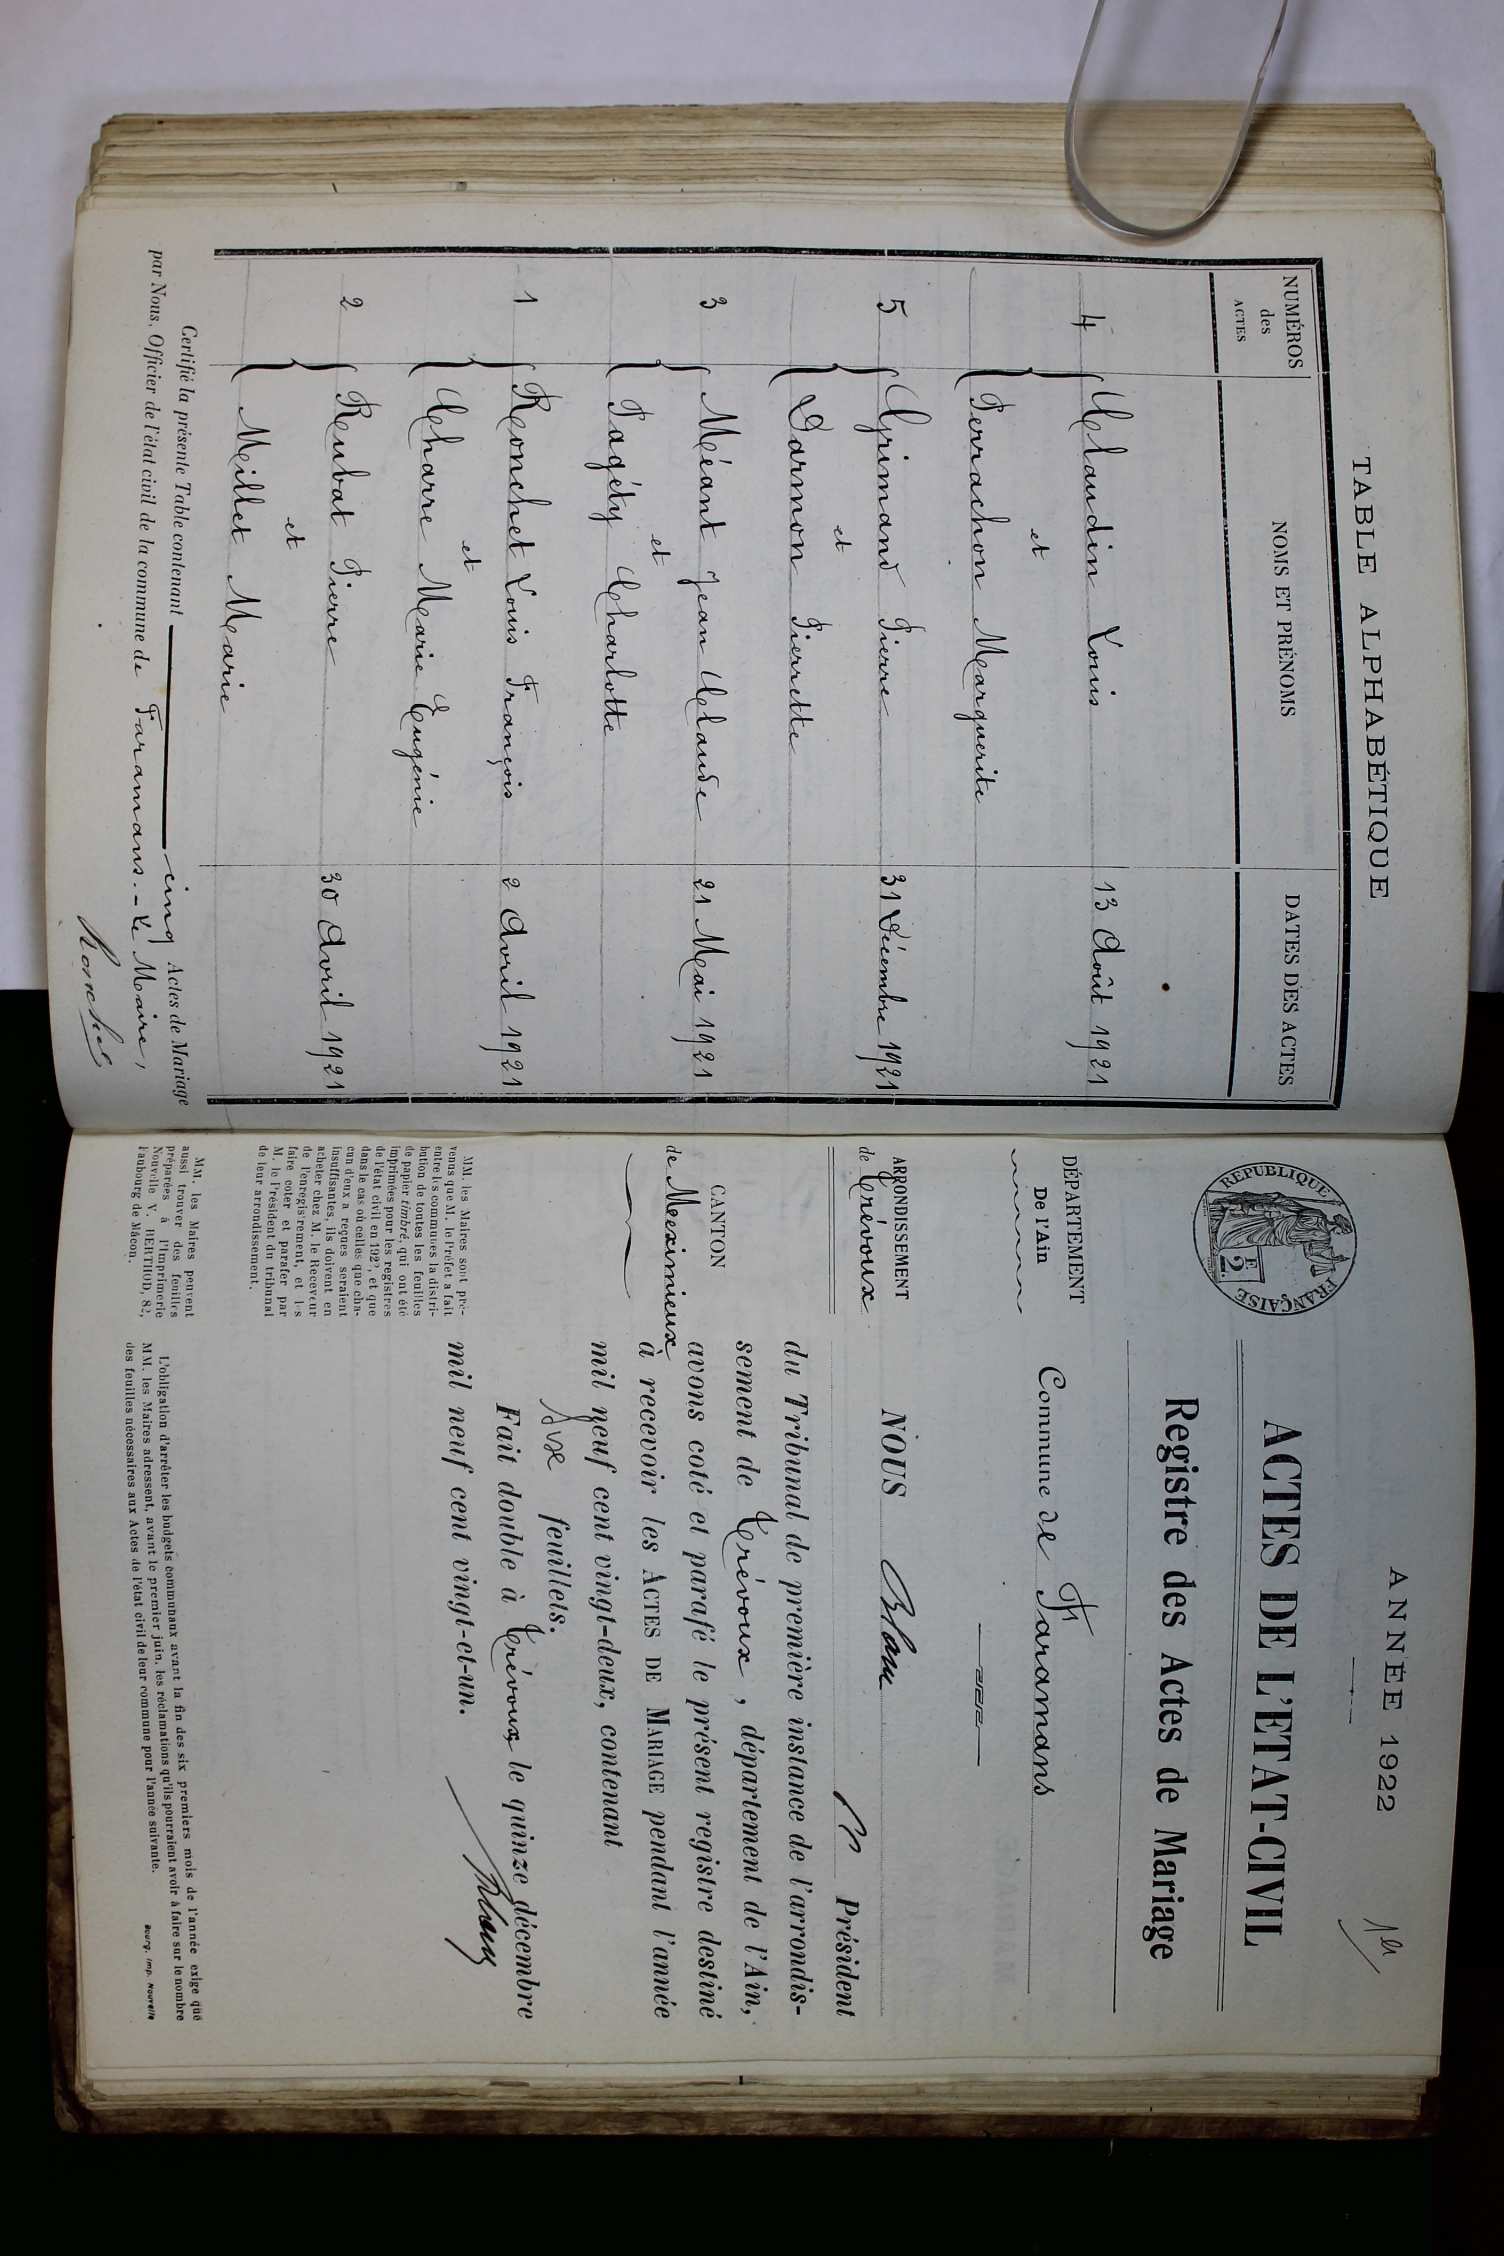 TABLE ALPHABÉTIQUE
NUMÉROS des ACTES NOMS ET PRÉNOMS DATES DES ACTES
4 Claudin Louis 13 Août 1921
et
Perrachon Marguerite
5 Grimand Pierre 31 Décembre 1921
et
Darmon Pierrette
3 Méant Jean Claude 21 Mai 1921
et
Pagéty Charlotte
1 Ronchet Louis François 2 Avril 1921
et
Charre Marie Eugénie
2 Rubat Pierre 30 Avril 1921
et
Millet Marie
Certifié la présente Table contenant cinq Actes de Mariage
par Nous, Officier de l'état civil de la commune de Faramans. - Le Maire,
Ronchet
ANNÉE 1922
1er
REPUBLIQUE FRANÇAISE
2F
ACTES DE L'ETAT-CIVIL
Registre des Actes de Mariage
DÉPARTEMENT
De l'Ain
Commune de Faramans
ARRONDISSEMENT
de Trévoux
CANTON
de Meximieux
NOUS Blanc
Président
du Tribunal de première instance de l'arrondis-
sement de Trévoux, département de l'Ain,
avons coté et parafé le présent registre destiné
à recevoir les ACTES DE MARIAGE pendant l'année
mil neuf cent vingt-deux, contenant
Six feuillets.
Fait double à Trévoux le quinze décembre
mil neuf cent vingt-et-un.
Blanc
MM. les Maires sont pré-
venus que M. le Préfet a fait
entre les communes la distri-
bution de toutes les feuilles
de papier timbré, qui ont été
imprimées pour les registres
de l'état civil en 1922, et que
dans le cas où celles que cha-
cun d'eux a reçues seraient
insuffisantes, ils doivent en
acheter chez M. le Receveur
de l'enregistrement, et les
faire coter et parafer par
M. le Président du tribunal
de leur arrondissement.
MM. les Maires peuvent
aussi trouver des feuilles
préparées à l'Imprimerie
Nouvelle V. BERTHOD, 82,
Faubourg de Mâcon.
L'obligation d'arrêter les budgets communaux avant la fin des six premiers mois de l'année exige que
MM. les Maires adressent, avant le premier juin, les réclamations qu'ils pourraient avoir à faire sur le nombre
des feuilles nécessaires aux Actes de l'état civil de leur commune pour l'année suivante.
Bourg, Imp. Nouvelle